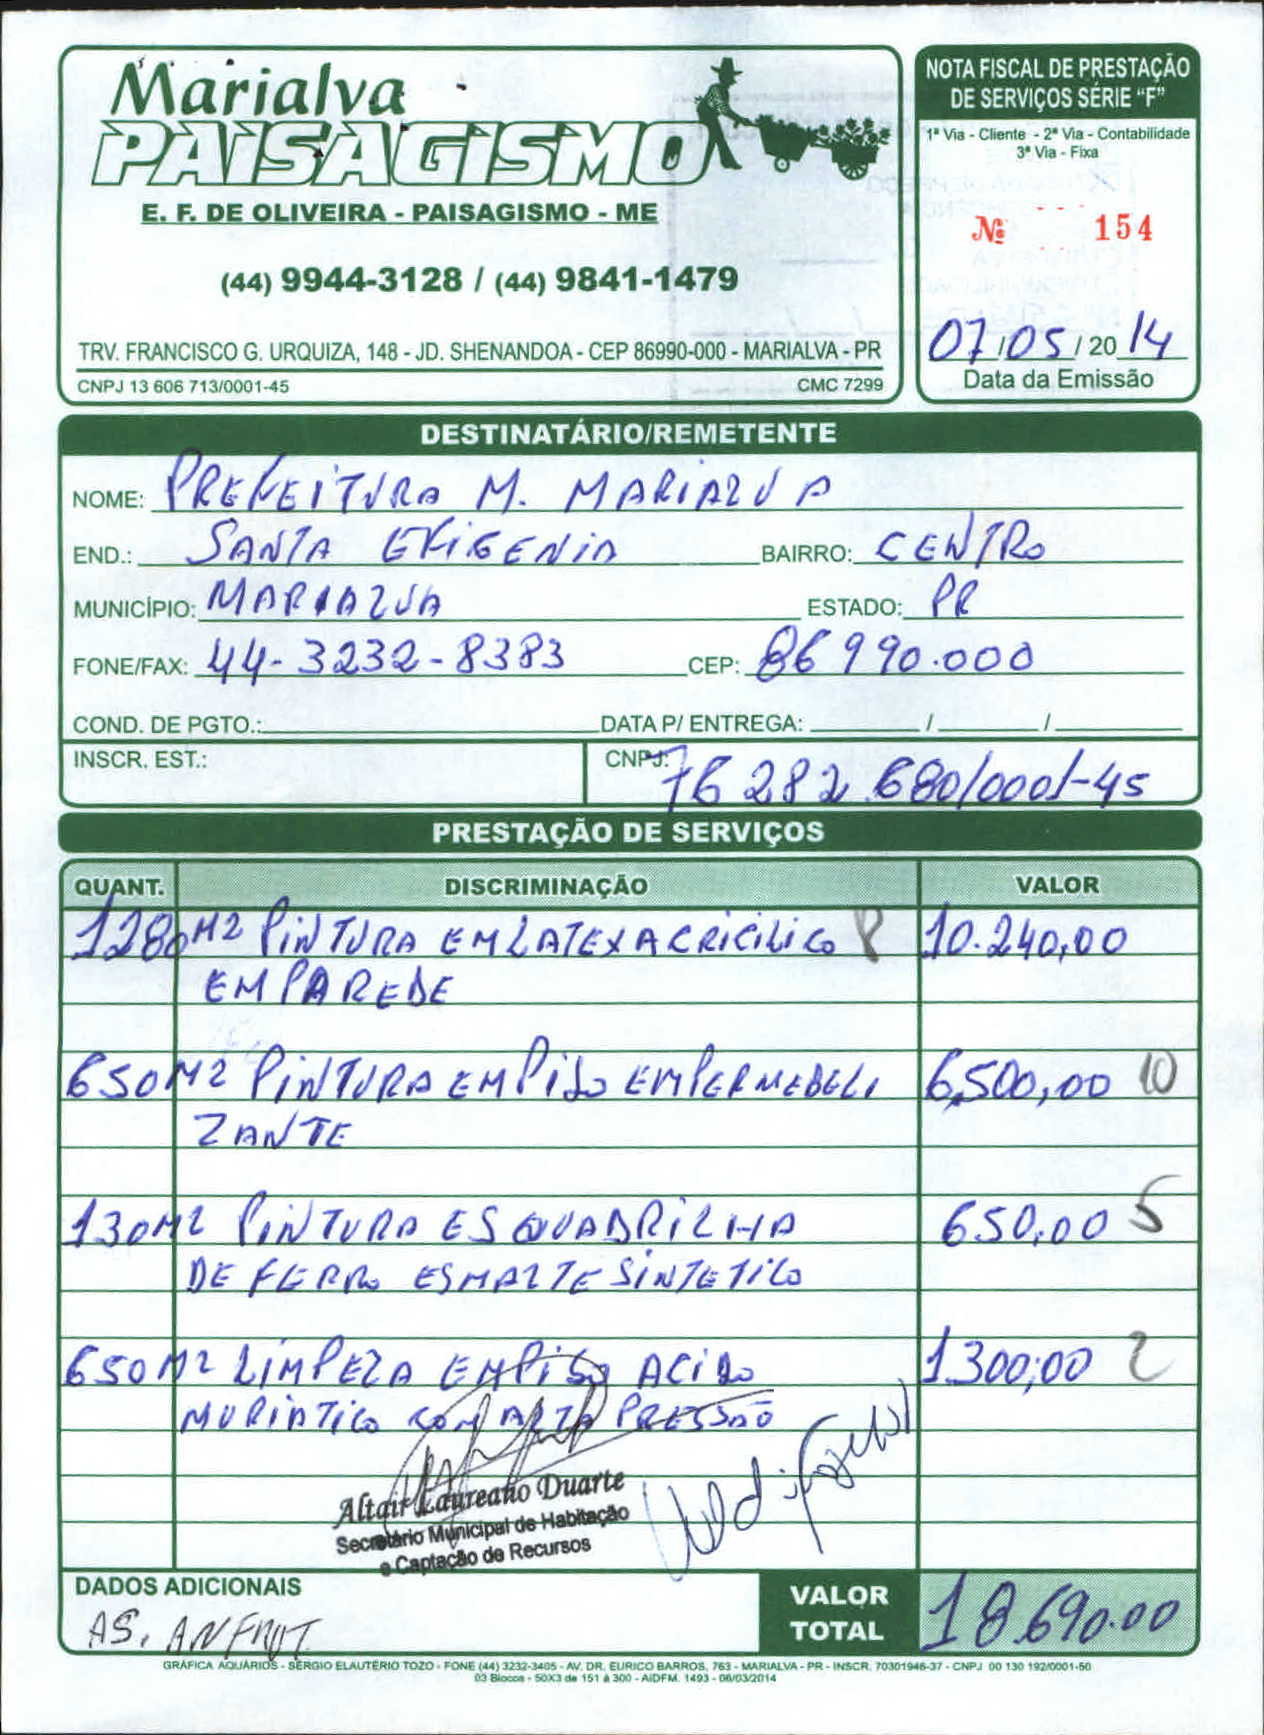 Marialva
PAISAGISMO
E. F. DE OLIVEIRA - PAISAGISMO - ME
(44) 9944-3128 / (44) 9841-1479
TRV. FRANCISCO G. URQUIZA, 148 - JD. SHENANDOA - CEP 86990-000 - MARIALVA - PR
CNPJ 13 606 713/0001-45 CMC 7299
NOTA FISCAL DE PRESTAÇÃO
DE SERVIÇOS SÉRIE “F”
1ª Via - Cliente - 2ª Via - Contabilidade
3ª Via - Fixa
Nº 154
07/05/2014
Data da Emissão
DESTINATÁRIO/REMETENTE
NOME: PREFEITURA M. MARIALVA
END.: SANTA EFIGENIA BAIRRO: CENTRO
MUNICÍPIO: MARIALVA ESTADO: PR
FONE/FAX: 44-3232-8383 CEP: 86990.000
COND. DE PGTO.: DATA P/ ENTREGA: / /
INSCR. EST.: CNPJ: 76 282 680/0001-45
PRESTAÇÃO DE SERVIÇOS
QUANT. DISCRIMINAÇÃO VALOR
1280M2 PINTURA EM LATEX ACRICILICO 8 10.240,00
EM PAREDE
650M2 PINTURA EM PISO EMPERMEBELI 6,500,00 10
ZANTE
130M2 PINTURA ESQUADRILHA 650,00 5
DE FERRO ESMALTE SINTETICO
650M2 LIMPEZA EM PISO ACIDO 1.300,00 2
MURIATICO COM ALTA PRESSÃO
Altair Laureano Duarte
Secretário Municipal de Habitação
e Captação de Recursos
DADOS ADICIONAIS
VALOR
TOTAL
18.690.00
GRÁFICA AQUÁRIOS - SÉRGIO ELAUTÉRIO TOZO - FONE (44) 3232-3405 - AV. DR. EURICO BARROS, 763 - MARIALVA - PR - INSCR. 70301946-37 - CNPJ 00 130 192/0001-50
03 Blocos - 50X3 de 151 à 300 - AIDFM. 1493 - 06/03/2014